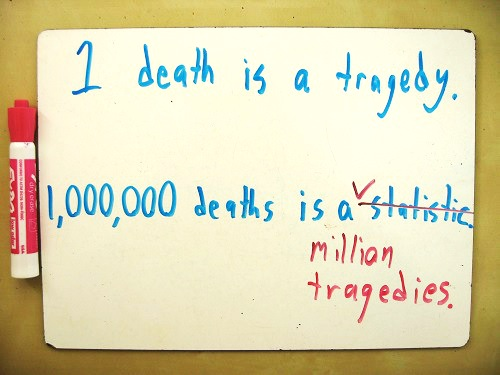 1 death is a tragedy.
1,000,000 deaths is a statistic.
million
tragedies.
EXPO